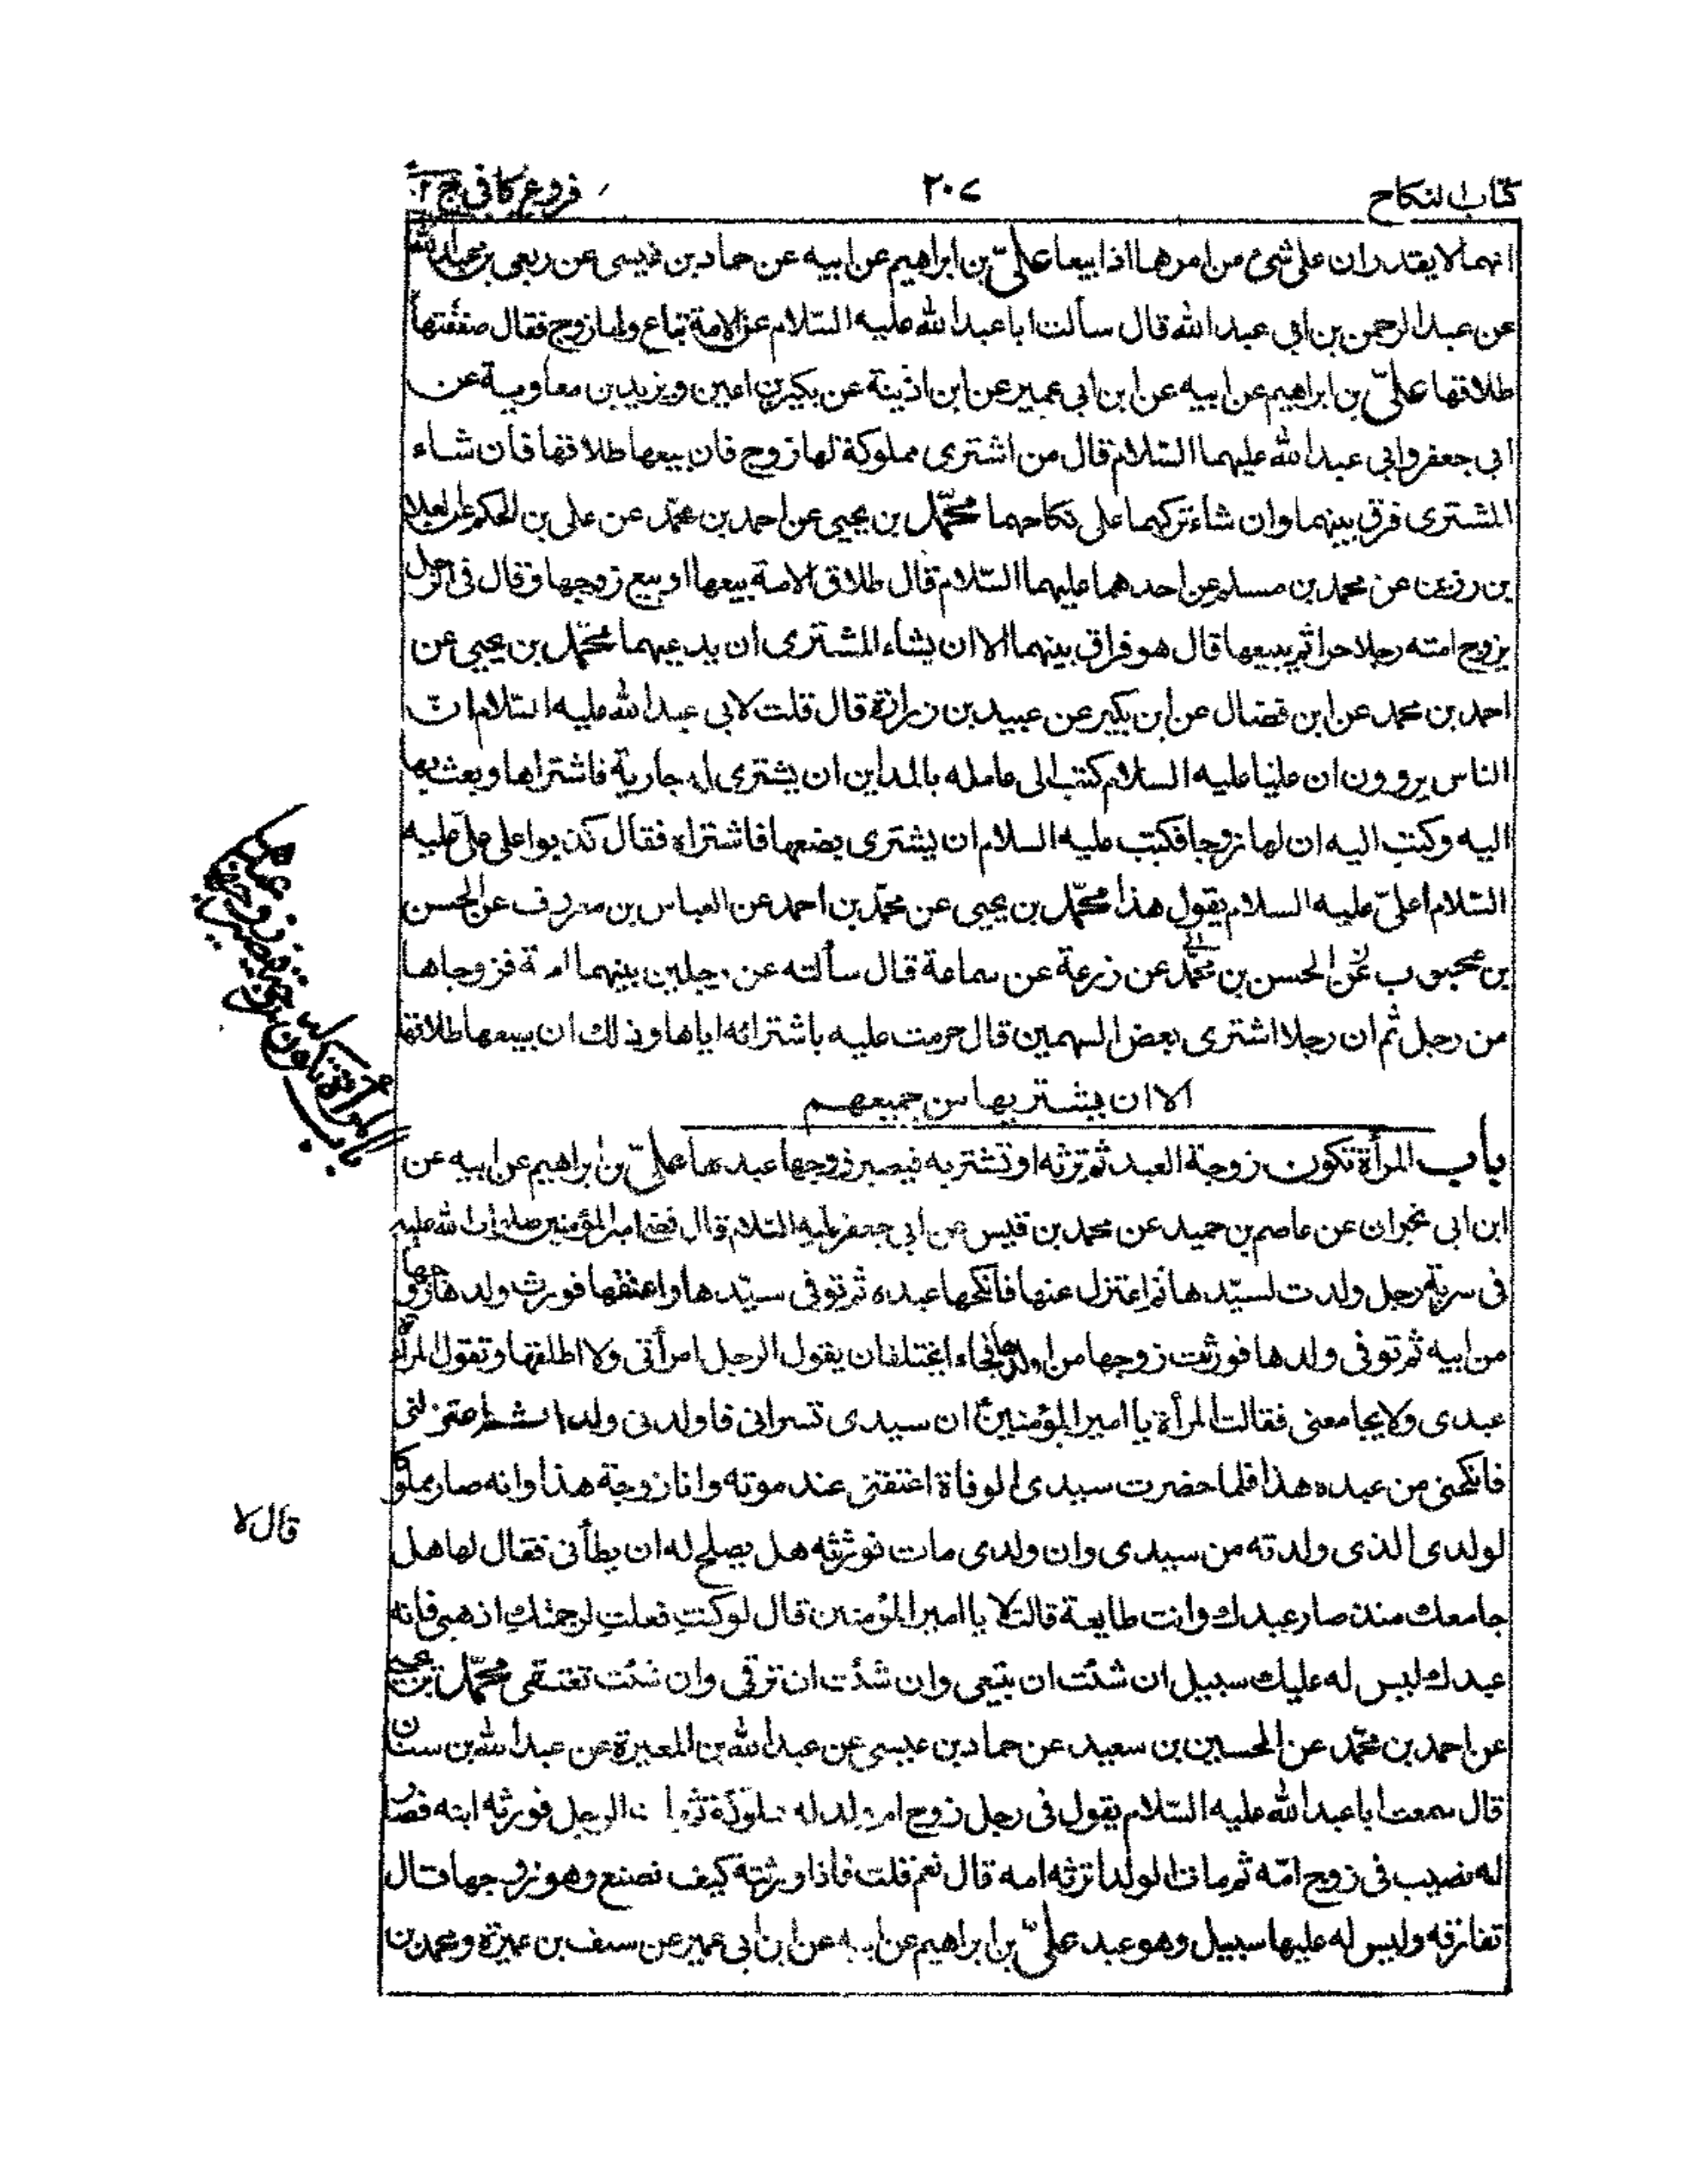 كتاب النكاح
٢٠٧
فروع كافى ج ٢
انهما لا يقدران على شئ من امرهما اذا بيعا علىّ بن ابراهيم عن ابيه عن حماد بن عيسى عن ربعى بن عبد الله
عن عبد الرحمن بن ابى عبد الله قال سألت ابا عبد الله عليه السّلام عن الامة تباع ولها زوج فقال صفقتها
طلاقها علىّ بن ابراهيم عن ابيه عن ابن ابى عمير عن ابن اذينة عن بكير بن اعين وبريد بن معاوية عن
ابى جعفر وابى عبد الله عليهما السّلام قال من اشترى مملوكة لها زوج فان بيعها طلاقها فان شاء
المشترى فرق بينهما وان شاء تركهما على نكاحهما محمّد بن يحيى عن احمد بن محمّد عن على بن الحكم عن العلا
بن رزين عن محمد بن مسلم عن احدهما عليهما السّلام قال طلاق الامة بيعها او بيع زوجها وقال فى الرجل
يزوج امته رجلا حرا ثم يبيعها قال هو فراق بينهما الا ان يشاء المشترى ان يدعهما محمّد بن يحيى عن
احمد بن محمد عن ابن فضال عن ابن بكير عن عبيد بن زرارة قال قلت لابى عبد الله عليه السّلام انّ
الناس يروون ان عليا عليه السلام كتب الى عامله بالمداين ان يشترى له جارية فاشتراها وبعث بها
اليه وكتب اليه ان لها زوجا فكتب عليه السلام ان يشترى بضعها فاشتراه فقال كذبوا على علىّ عليه
السّلام اعلىّ عليه السلام يقول هذا محمّد بن يحيى عن محمّد بن احمد عن العباس بن معروف عن الحسن
بن محبوب عن الحسن بن محمّد عن زرعة عن سماعة قال سألته عن رجلين بينهما امة فزوجاها
من رجل ثم ان رجلا اشترى بعض السهمين قال حرمت عليه باشترائه اياها وذلك ان بيعها طلاقها
الا ان يشتريها من جميعهم
باب المرأة تكون زوجة العبد ثم ترثه او تشتريه فيصير زوجها عبدها علىّ بن ابراهيم عن ابيه عن
ابن ابى نجران عن عاصم بن حميد عن محمد بن قيس عن ابى جعفر عليه السّلام قال قضى امير المؤمنين صلوات الله عليه
فى سرية رجل ولدت لسيّدها ثم اعتزل عنها فانكحها عبده ثم توفى سيّدها واعتقها فورث ولدها زوجها
من ابيه ثم توفى ولدها فورثت زوجها من ولدها فجاءا يختلفان يقول الرجل امرأتى ولا اطلقها وتقول المرأة
عبدى ولا يجامعنى فقالت المرأة يا امير المؤمنين ان سيدى تسرانى فاولدنى ولدا ثم اعتزلنى
فانكحنى من عبده هذا فلما حضرت سيدى الوفاة اعتقنى عند موته وانا زوجة هذا وانه صار مملوكا
لولدى الذى ولدته من سيدى وان ولدى مات فورثته هل يصلح له ان يطأنى فقال لها هل
جامعك منذ صار عبدك وانت طايعة قالت لا يا امير المؤمنين قال لو كنتِ فعلتِ لرجمتكِ اذهبى فانه
عبدك ليس له عليك سبيل ان شئت ان تبيعى وان شئت ان ترقى وان شئت تعتقى محمّد بن يحيى
عن احمد بن محمّد عن الحسين بن سعيد عن حماد بن عيسى عن عبد الله بن المغيرة عن عبد الله بن سنان
قال سمعت ابا عبد الله عليه السّلام يقول فى رجل زوج ام ولد له مملوكه ثم مات الرجل فورثه ابنه فصار
له نصيب فى زوج امّه ثم مات الولد اترثه امه قال نعم قلت فاذا ورثته كيف تصنع وهو زوجها قال
تفارقه وليس له عليها سبيل وهو عبد علىّ بن ابراهيم عن ابيه عن ابن ابى عمير عن سيف بن عميرة ومحمد بن
باب المرأة تكون
قال لا